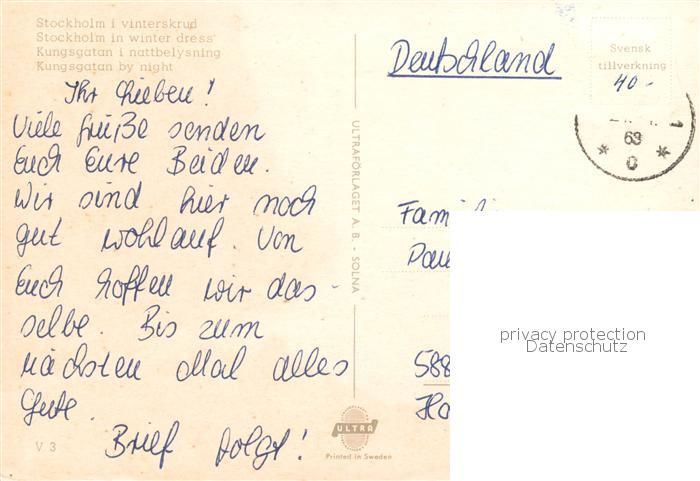 Stockholm i vinterskrud
Stockholm in winter dress
Kungsgatan i nattbelysning
Kungsgatan by night
Ihr Lieben!
Viele Grüße senden
Euch Eure Beiden.
Wir sind hier noch
gut wohlauf. Von
Euch hoffen wir das-
selbe. Bis zum
nächsten Mal alles
Gute.
Brief folgt!
V 3
ULTRAFÖRLAGET A. B. · SOLNA
ULTRA
Printed in Sweden
Deutschland
Svensk
tillverkning
40.-
63
Fami
588
privacy protection
Datenschutz